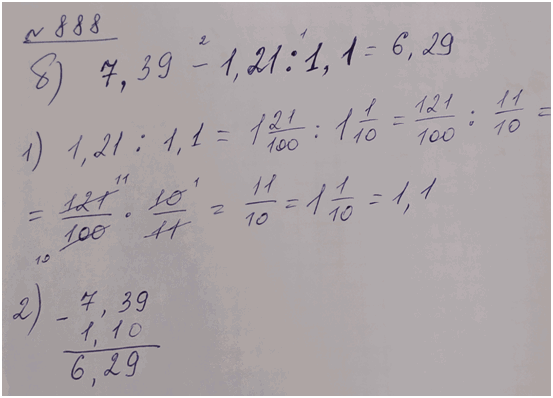 № 888
б) 7,39 - 1,21 : 1,1 = 6,29
1) 1,21 : 1,1 = 1 21/100 : 1 1/10 = 121/100 : 11/10 =
= 121/100 · 10/11 = 11/10 = 1 1/10 = 1,1
2) - 7,39
1,10
6,29